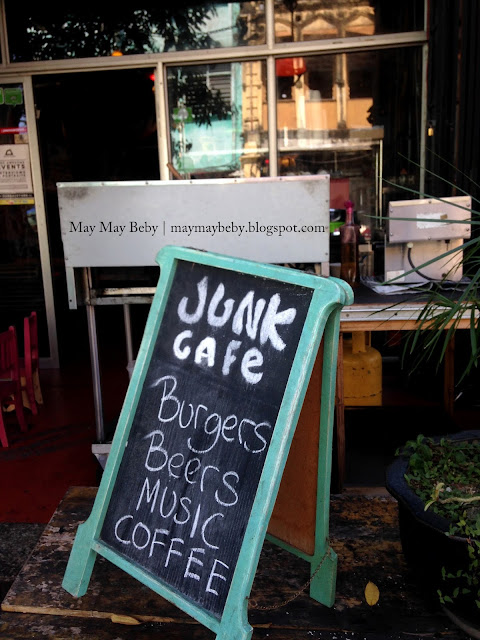 EVENTS
May May Beby | maymaybeby.blogspot.com
JUNK
CAFe
Burgers
Beers
MUSIC
COFFEE